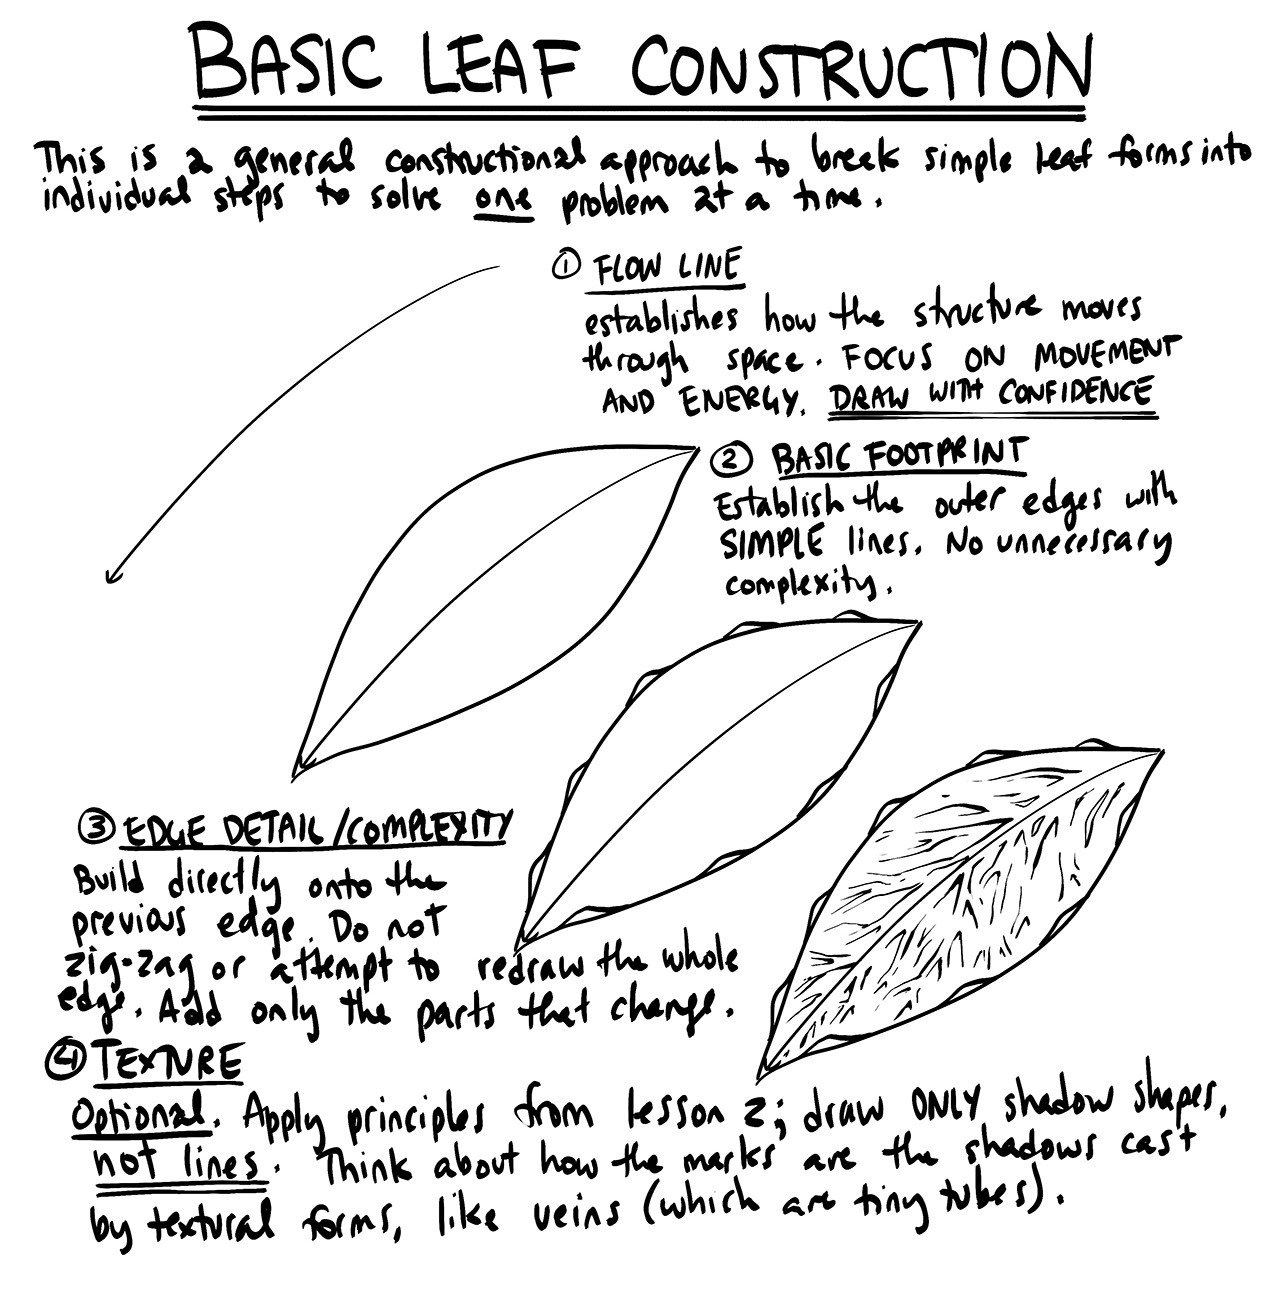 BASIC LEAF CONSTRUCTION
This is a general constructional approach to break simple leaf forms into
individual steps to solve one problem at a time.
① FLOW LINE
establishes how the structure moves
through space. FOCUS ON MOVEMENT
AND ENERGY. DRAW WITH CONFIDENCE
② BASIC FOOTPRINT
Establish the outer edges with
SIMPLE lines. No unnecessary
complexity.
③ EDGE DETAIL/COMPLEXITY
Build directly onto the
previous edge. Do not
zig-zag or attempt to redraw the whole
edge. Add only the parts that change.
④ TEXTURE
Optional. Apply principles from lesson 2; draw ONLY shadow shapes,
not lines. Think about how the marks are the shadows cast
by textural forms, like veins (which are tiny tubes).